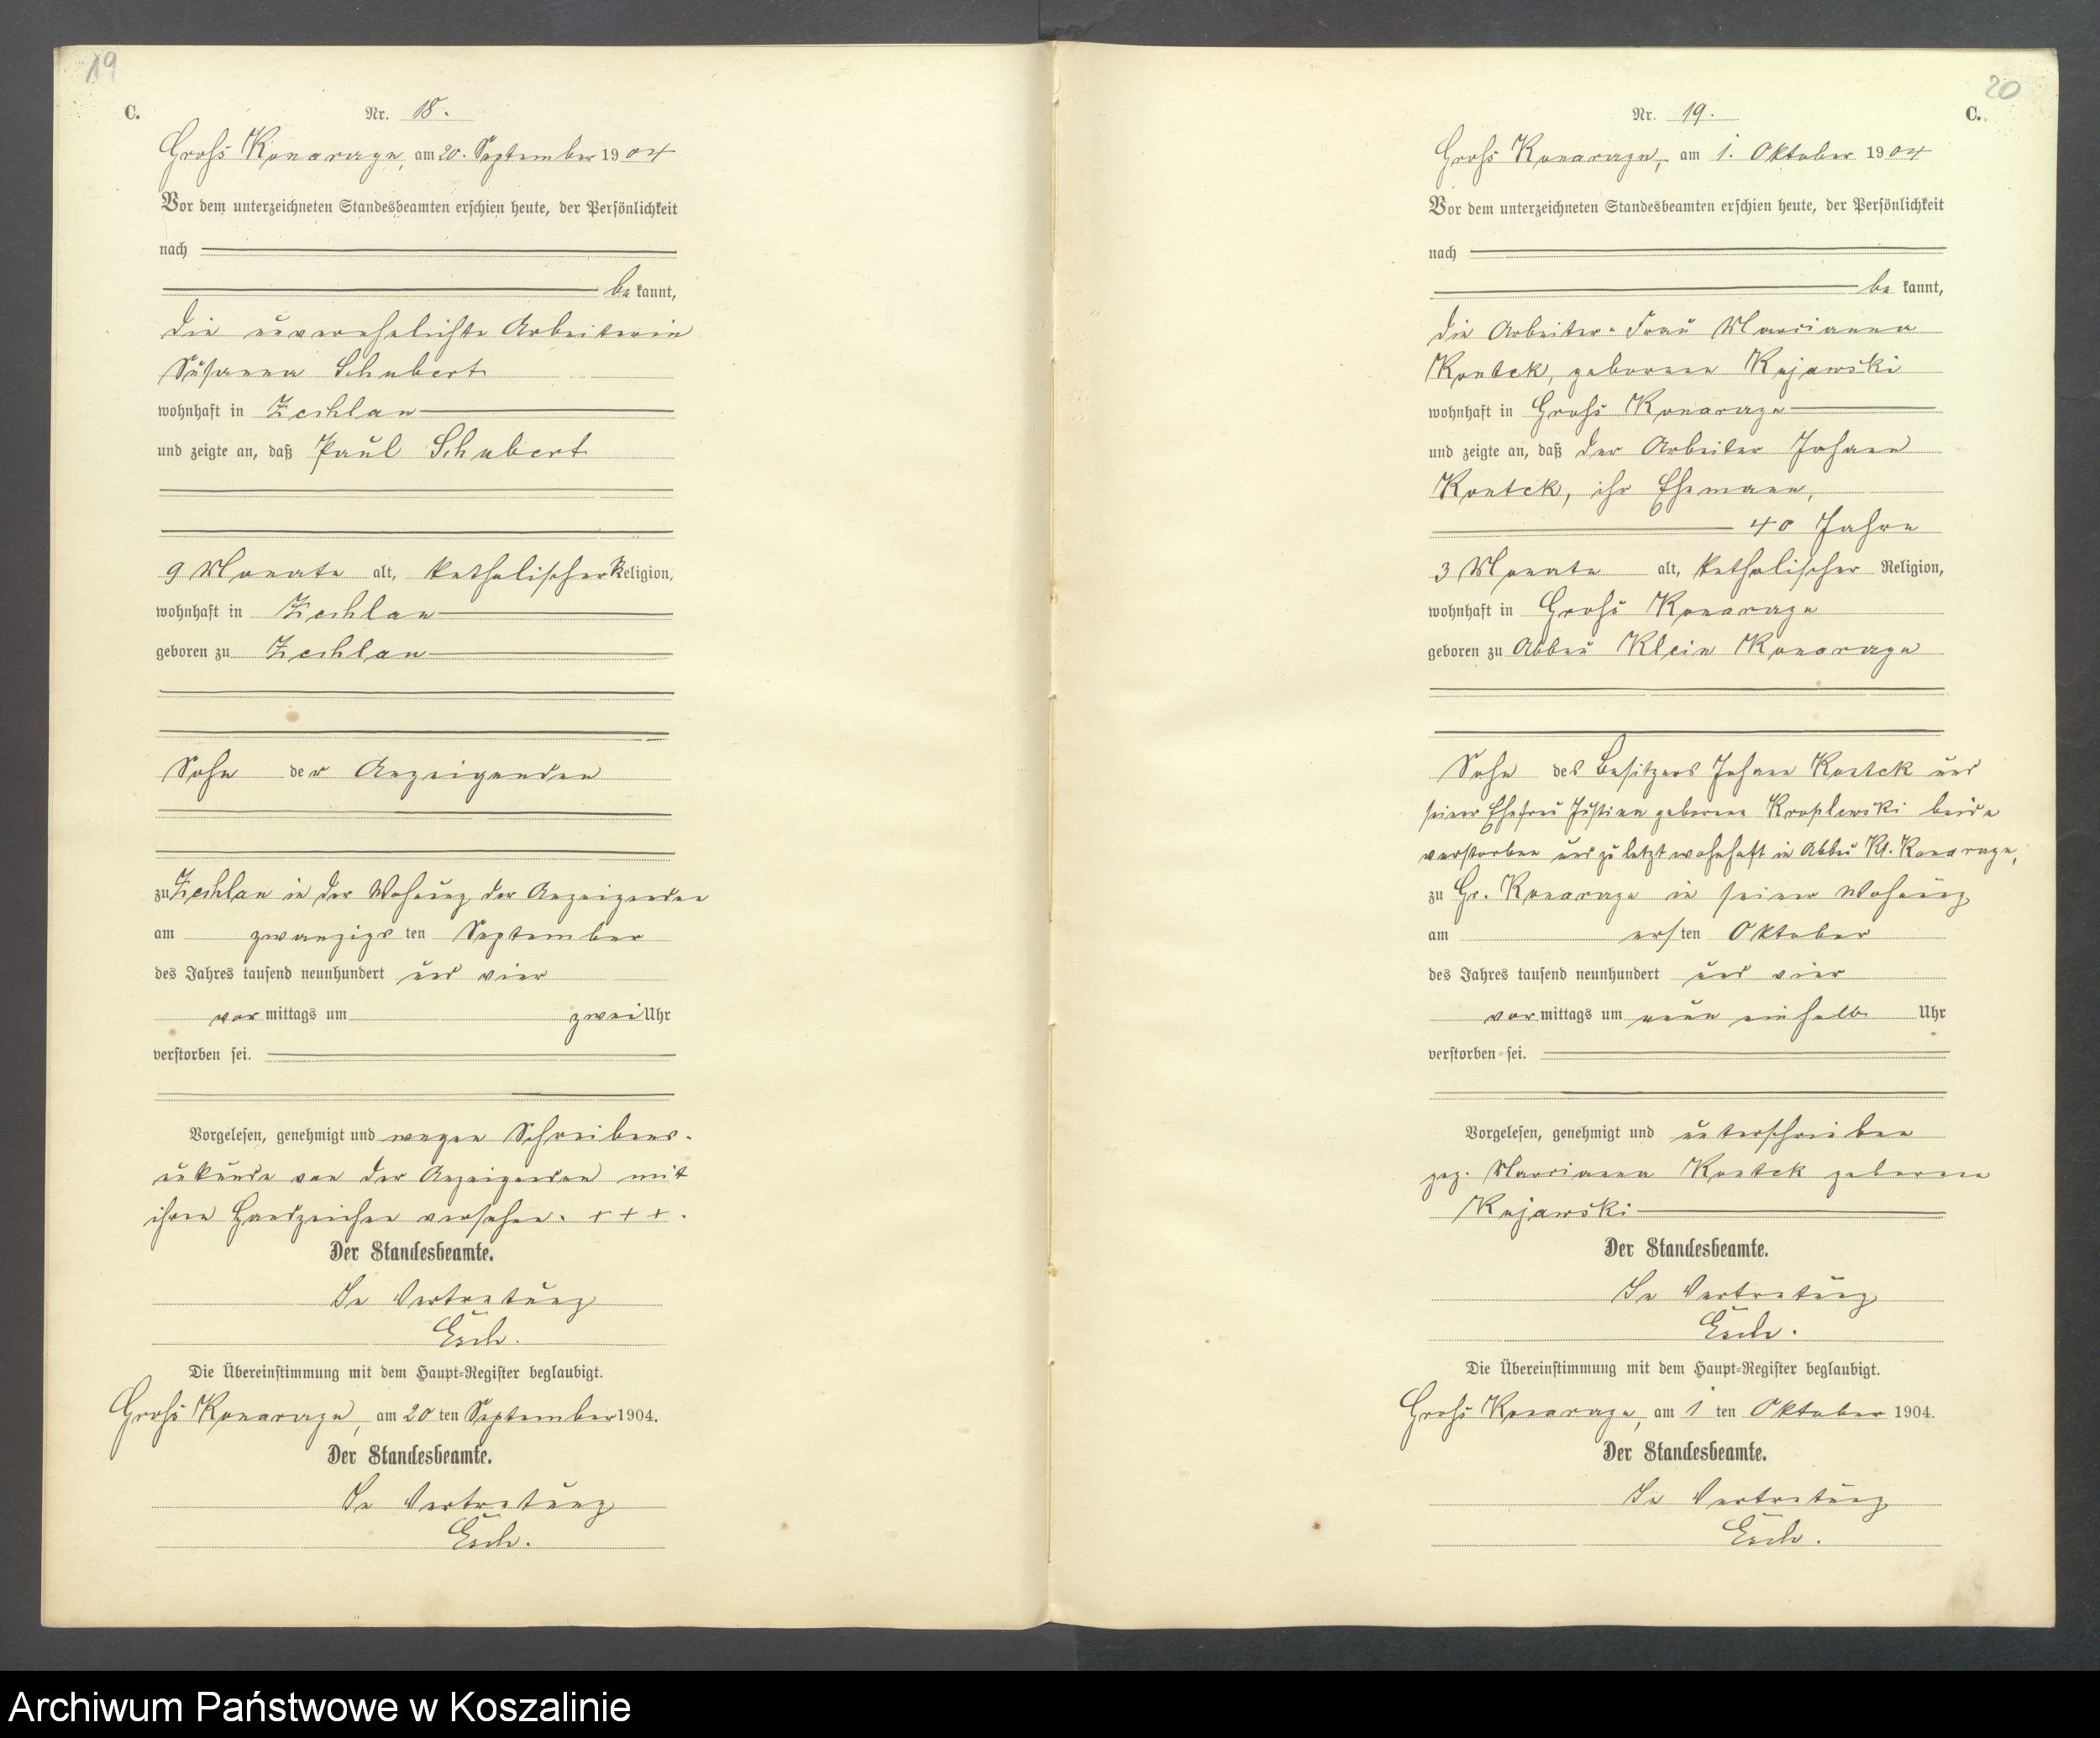 19
C.
Nr. 18.
Groß Konarczyn, am 20. September 1904
Vor dem unterzeichneten Standesbeamten erschien heute, der Persönlichkeit
nach
be kannt,
die unverehelichte Arbeiterin
Susanna Schubert
wohnhaft in Zechlau
und zeigte an, daß Paul Schubert
9 Monate alt, katholischer Religion,
wohnhaft in Zechlau
geboren zu Zechlau
Sohn der Anzeigenden
zu Zechlau in der Wohnung der Anzeigenden
am zwanzigs ten September
des Jahres tausend neunhundert und vier
vor mittags um zwei Uhr
verstorben sei.
Vorgelesen, genehmigt und wegen Schreibens-
unkunde von der Anzeigenden mit
ihrem Handzeichen versehen. + + +.
Der Standesbeamte.
In Vertretung
Esch.
Die Übereinstimmung mit dem Haupt-Register beglaubigt.
am 20 ten September 1904.
Der Standesbeamte.
In Vertretung
Esch.
20
Nr. 19.
C.
am 1. Oktober 1904
Vor dem unterzeichneten Standesbeamten erschien heute, der Persönlichkeit
nach
be kannt,
die Arbeiter-Frau Marianna
Kontek, geborene Kujawski
wohnhaft in Groß
und zeigte an, daß der Arbeiter Johann
Kontek, ihr Ehemann,
40 Jahre
3 Monate alt, katholischer Religion,
wohnhaft in Groß
geboren zu Abbau Klein
Sohn des Besitzers Johann Kontek und
seiner Ehefrau Justina geborene Kroplewski beide
verstorben und zuletzt wohnhaft in Abbau Kl.
zu Gr. in seiner Wohnung
am ers ten Oktober
des Jahres tausend neunhundert und vier
vor mittags um neun einhalb Uhr
verstorben sei.
Vorgelesen, genehmigt und unterschrieben
gez. Marianna Kontek geborene
Kujawski
Der Standesbeamte.
In Vertretung
Esch.
Die Übereinstimmung mit dem Haupt-Register beglaubigt.
am 1 ten Oktober 1904.
Der Standesbeamte.
In Vertretung
Esch.
Archiwum Państwowe w Koszalinie